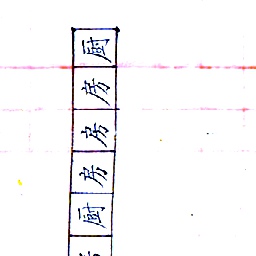 厨
房
房
房
厨